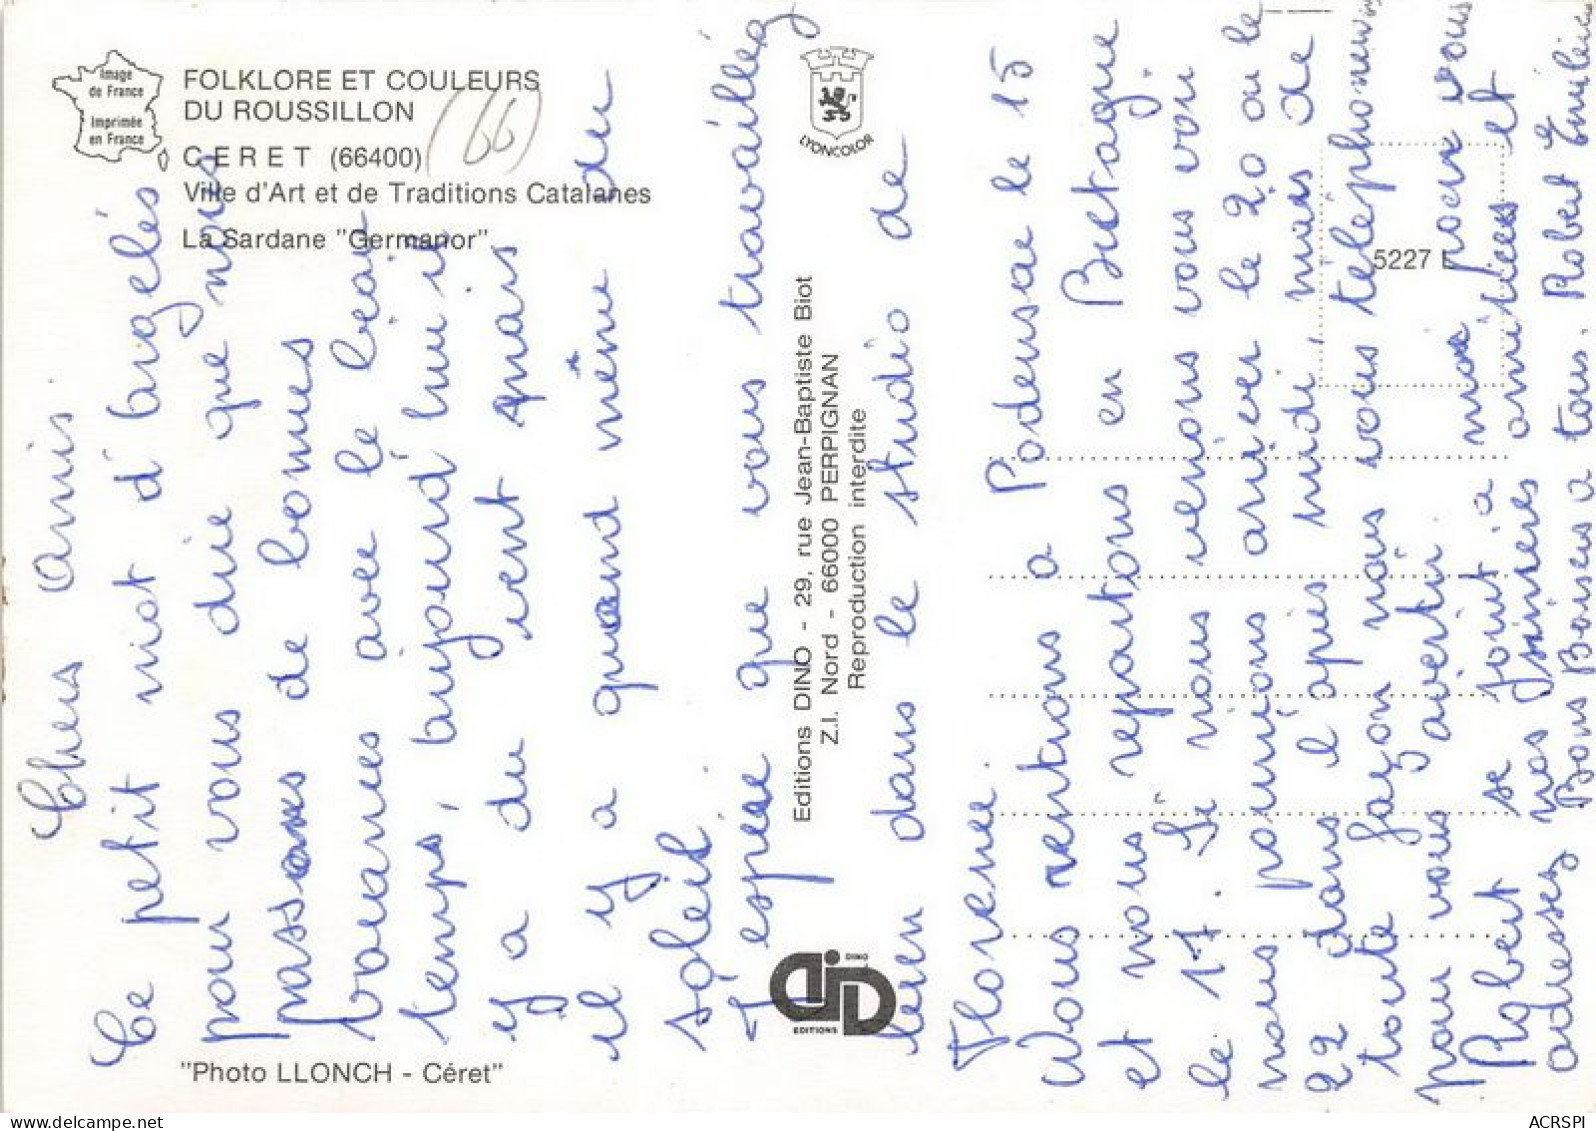 Image
de France
Imprimée
en France
FOLKLORE ET COULEURS
DU ROUSSILLON
(66)
CERET (66400)
Ville d'Art et de Traditions Catalanes
La Sardane "Germanor"
LYONCOLOR
5227 E
Editions DINO - 29, rue Jean-Baptiste Biot
Z.I. Nord - 66000 PERPIGNAN
Reproduction interdite
DINO
EDITIONS
"Photo LLONCH - Céret"
Chers amis
Ce petit mot d'argelés
pour vous dire que nous
passons de bonnes
vacances avec le beau
temps, aujourd'hui il
y a du vent mais
il y a quand même du
soleil.
J'espère que vous travaillez
bien dans le studio de
Florence.
Nous rentrons a Podensac le 15
et nous repartons en Bretagne
le 17. Si nous venons vous voir
nous pourrions arriver le 20 ou le
22 dans l'après midi, mais de
toute façon nous vous téléphonerons
pour vous avertir.
Robert se joint a moi pour vous
adressez nos sincères amitiées et
Bons Baisers a tous. Robert Emilie
ACRSPI